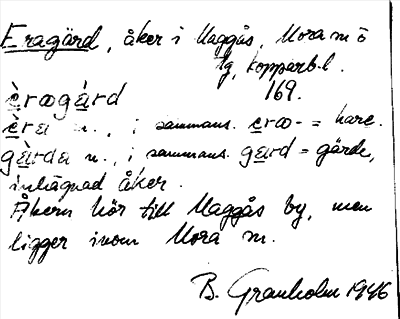 Eragärd, åker i Maggås, Mora m o
lg, Kopparb. l.
èræga̠rd 169.
èra m., i sammans. eræ- = hare.
gàrda n., i sammans. gard = gärde,
inhägnad åker.
Åkern hör till Maggås by, men
ligger inom Mora m.
B. Granholm 1946